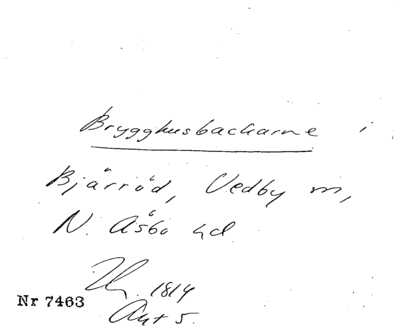 Brygghusbackarne i
Bjärröd, Vedby m,
N. Åsbo hd
1814
Nr 7463
Akt 5.